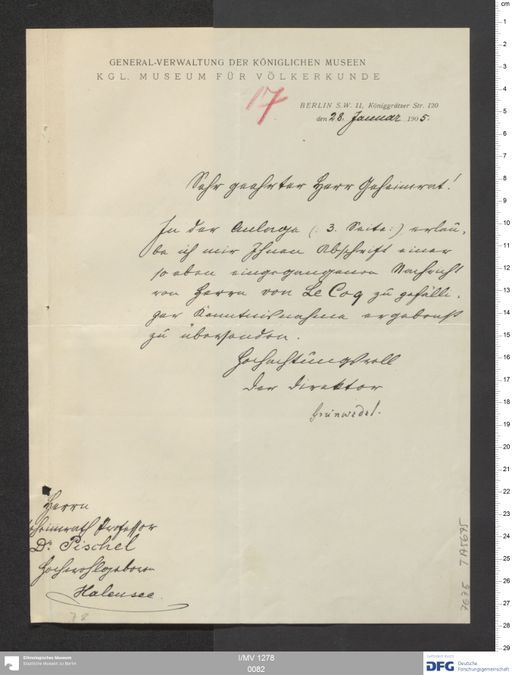 GENERAL-VERWALTUNG DER KÖNIGLICHEN MUSEEN
KGL. MUSEUM FÜR VÖLKERKUNDE
17
BERLIN S.W. 11, Königgrätzer Str. 120
den 28. Januar 1905.
Sehr geehrter Herr Geheimrat!
In der Anlage (: 3. Seite:) erlau-
be ich mir Ihnen Abschrift einer
soeben eingegangenen Nachricht
von Herrn von Le Coq zu gefälli-
ger Kenntnisnahme ergebenst
zu übersenden.
Hochachtungsvoll
Der Direktor
Grünwedel.
Herrn
Geheimrath Professor
Dr. Pischel
Hochwohlgeboren
Halensee.
78
Ethnologisches Museum
Staatliche Museen zu Berlin
I/MV 1278
0082
gefördert durch
DFG Deutsche
Forschungsgemeinschaft
cm
0
1
2
3
4
5
6
7
8
9
10
11
12
13
14
15
16
17
18
19
20
21
22
23
24
25
26
27
28
29